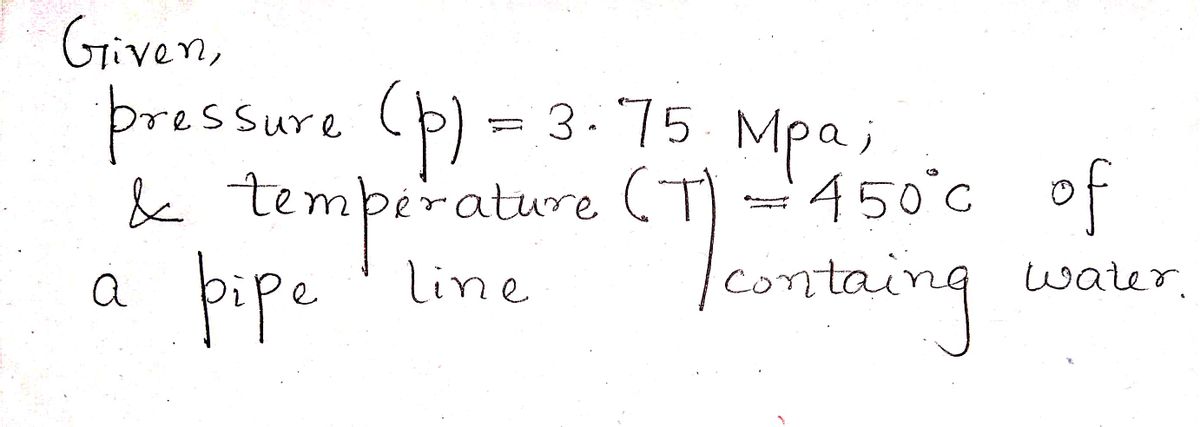 Given,
pressure (p) = 3.75 Mpa;
& temperature (T) = 450°c of
a pipe line containg water.